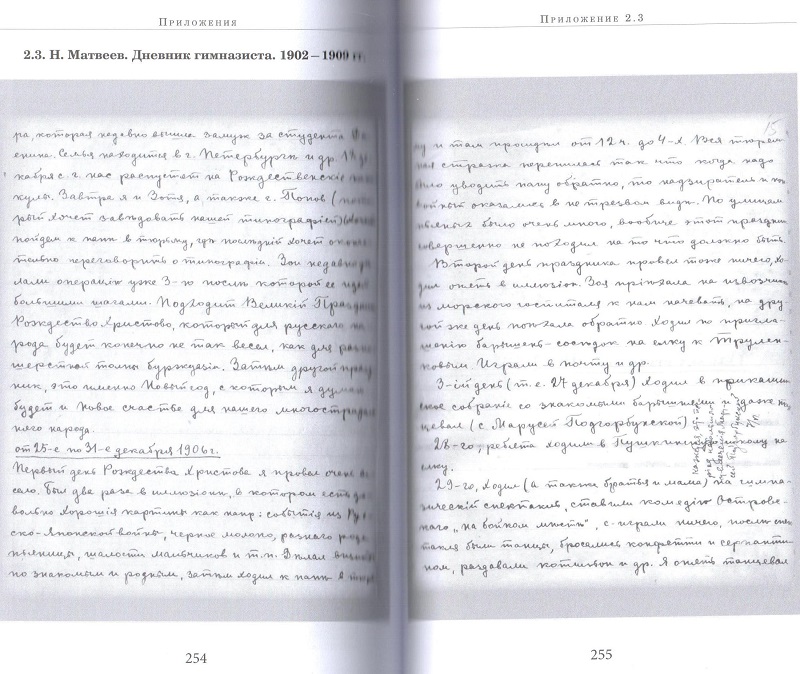 Приложения
2.3. Н. Матвеев. Дневник гимназиста. 1902–1909 гг.
ра, которая недавно вышла замуж за студента
енина. Семья находится в г. Петербурги и др.
кабря с. г. нас распустят на Рождественскія
кулы. Завтра я и Зотя, а также г. Попов
рый хочет завѣдовать нашей типографіей)
пойдем к папѣ в тюрьму, гдѣ послѣдній хочет
тельно переговорить о типографіи. Зои недавно
лали операцію уже 3-ю послѣ которой ее
большими шагами. Подходит Великій
Рождество Христово, который для русскаго на
рода будет конечно не так весел, как для
шерстной толпы буржуазіи. Затѣм другой
ник, это именно Новый год, с которым я думаю
будет и новое счастье для нашего многострада
наго народа.
от 25-е по 31-е декабря 1906 г.
Первый день Рождества Христова я провел очень
село. Был два раза в иллюзіонѣ, в котором есть
вольно хорошія картины как напр: событія из
ско-Японской войны, черное молоко, разнаго рода
пьяницы, шалости мальчиков и т.п. Дѣлал визиты
по знакомым и родным, затѣм ходил к папѣ в
254
Приложение 2.3
15
му и там просидѣл от 12 ч. до 4-х. Вся тюрем
ная стража перепилась так что когда надо
было уводить папу обратно, то надзиратель и
оказались в не трезвом видѣ. По улицам
пьяных было очень много, вообще этот праздник
совершенно не походил на то что должно быть.
Второй день праздника провел тоже ничего,
дил опять в иллюзіон. Зоя пріѣхала на извозчикѣ
из морского госпиталя к нам ночевать, на дру
гой же день поѣхала обратно. Ходил по пригла
шенію барышень-сосѣдок на елку к Трулен-
ковым. Играли в почту и др.
3-ій день (т.е. 27 декабря) ходил в прикащи
ское собраніе со знакомыми барышнями и даже
цевал (с Марусей Подгорбунской)
28-го, ребята ходили в Пушкинскую школу на
елку.
29-го, ходил (а также братья и мама) на гимна-
зическій спектакль, ставили комедію Островс-
каго „на бойком мѣстѣ", с-играли ничего, послѣ спек
такля были танцы, бросались конфетти и серпанти
ном, раздавали котильон и др. Я опять танцевал
255